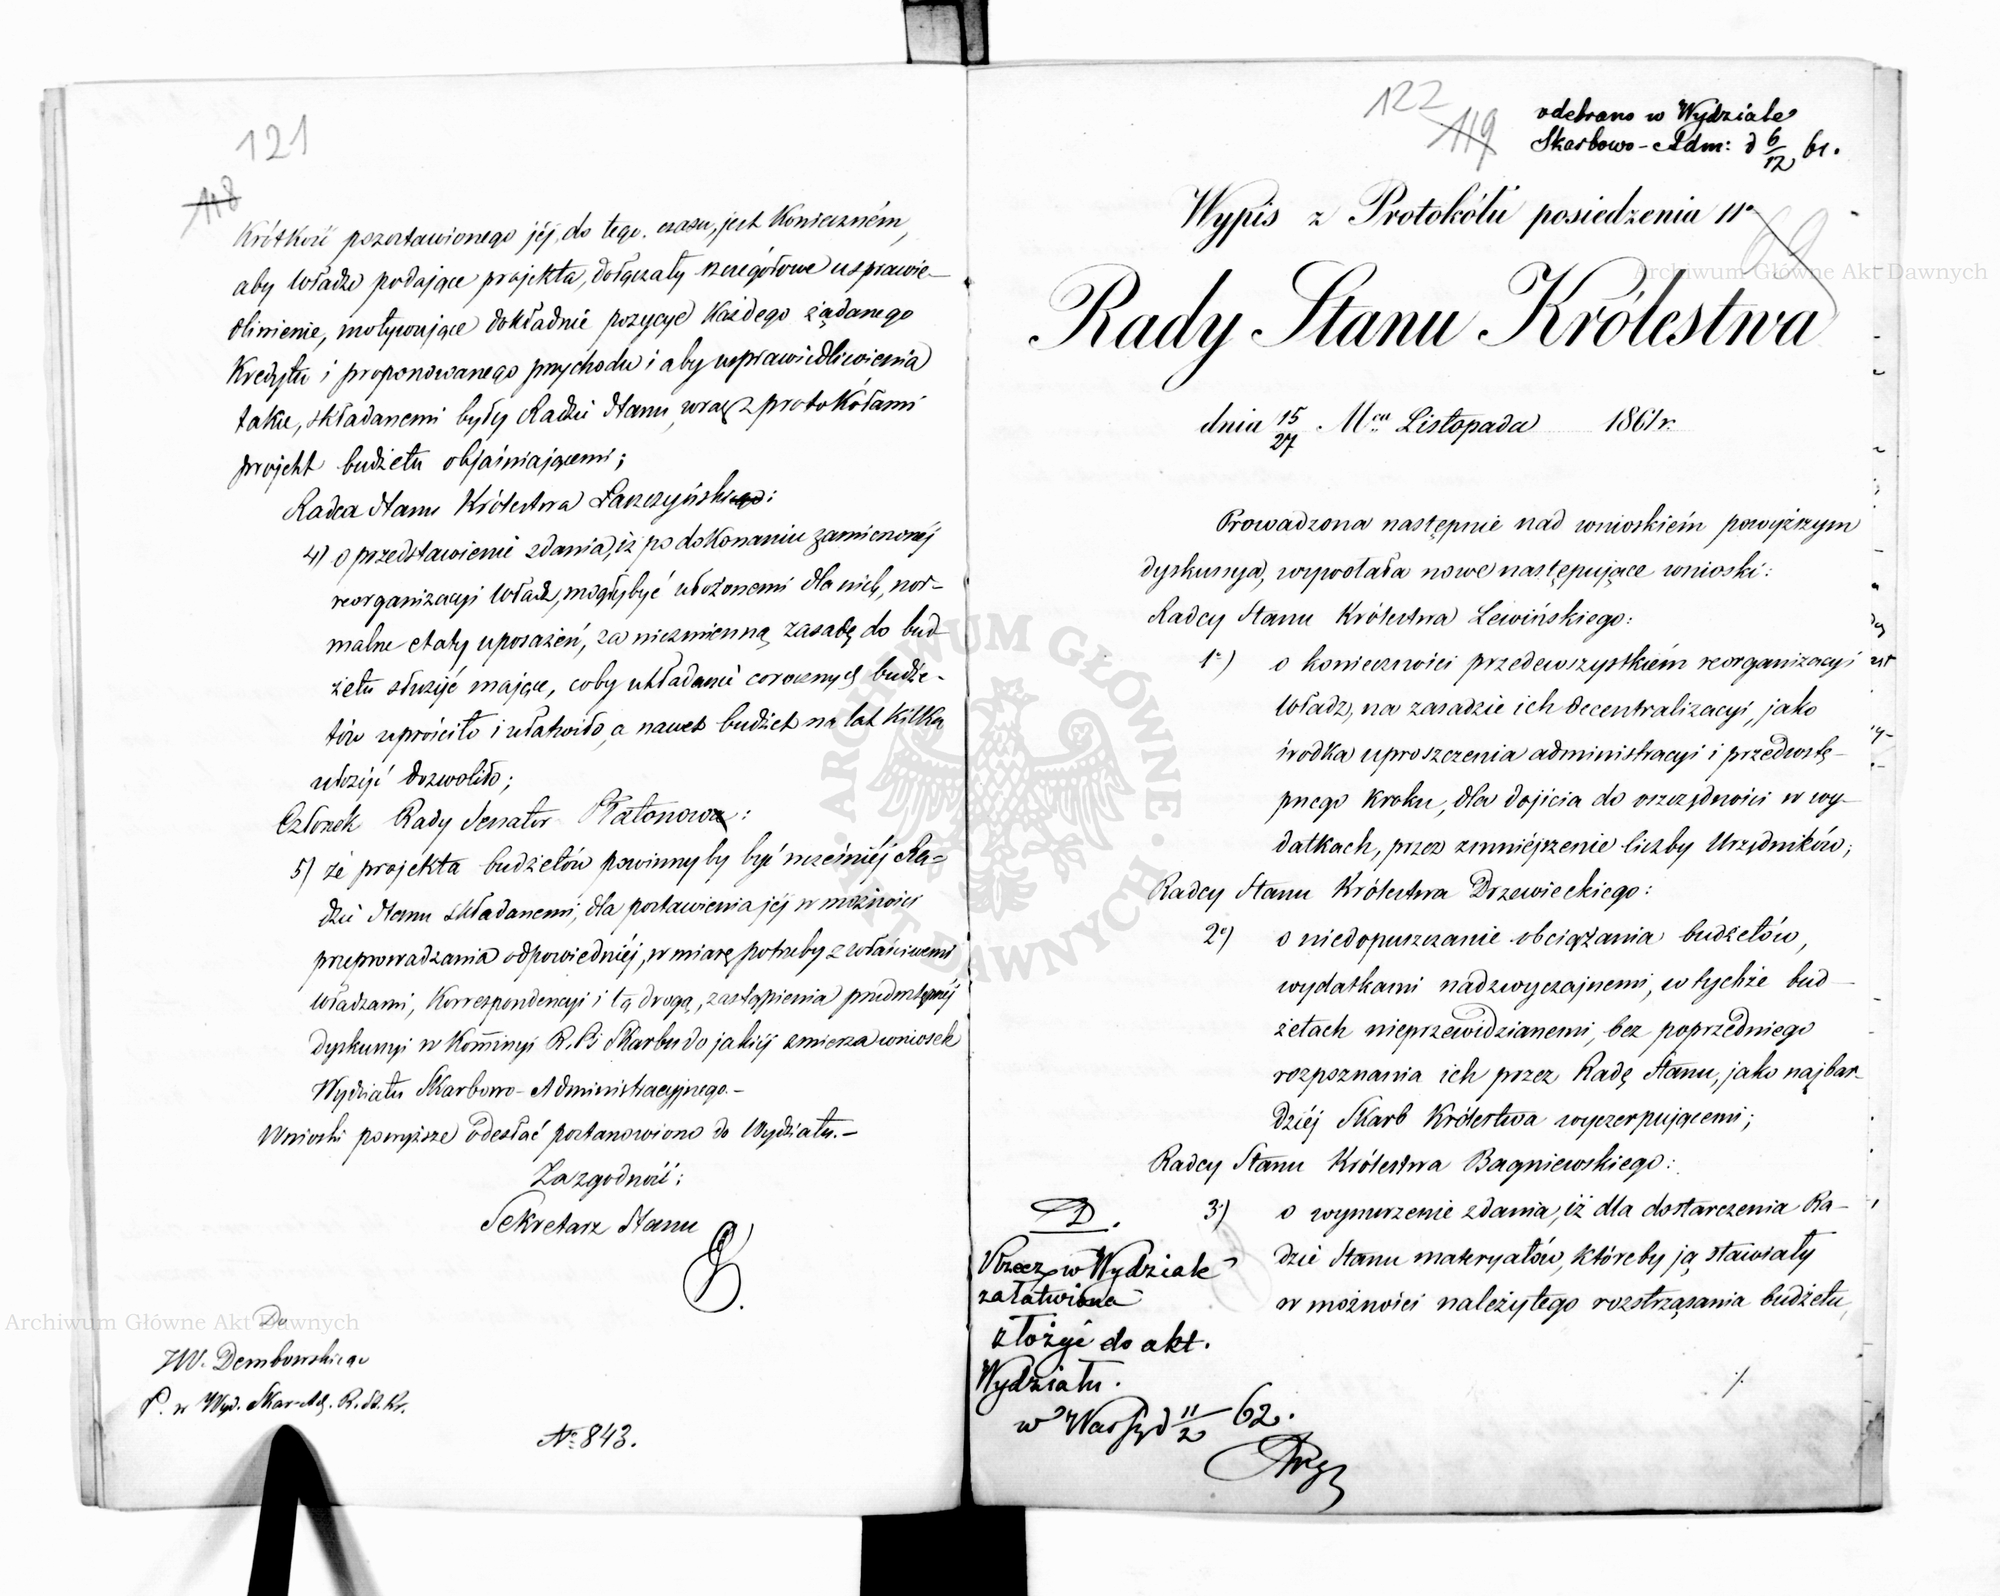 121
118
Krótkość pozostawionego jéj, do tego czasu, jest konieczném,
aby władze podające projekta, dołączały szczegółowe usprawie-
dliwienie, motywujące dokładnie pozycye każdego żądanego
kredytu i proponowanego przychodu i aby usprawiedliwienia
takie, składanemi były Radzie Stanu, wraz z protokółami
projekt budżetu objaśniającemi;
Radca Stanu Królestwa Łaszczyński:
4) o przedstawienie zdania, iż po dokonaniu zamierzonéj
reorganizacyi władz, mogłyby być ułożonemi dla nich, nor-
malne etaty uposażeń, za niezmienną zasadę do bud-
żetu służyć mające, coby układanie corocznych budże-
tów uprościło i ułatwiło, a nawet budżet na lat kilka
ułożyć dozwoliło;
Członek Rady Senator Płatonow:
5) że projekta budżetów powinny by być wcześniéj Ra-
dzie Stanu składanemi, dla postawienia jéj w możności
przeprowadzania odpowiedniéj, w miarę potrzeby z właściwemi
władzami, korrespondencyi i tą drogą, zastąpienia przedwstępnéj
dyskussyi w Kommissyi R. P. i Skarbu do jakiéj zmierza wniosek
Wydziału Skarbowo-Administracyjnego.-
Wnioski powyższe odesłać postanowiono do Wydziału.-
Za zgodność:
Sekretarz Stanu
Do
JW. Dembowskiego
P. w Wyd. Skar-Ad. R. St. Kr.
No 843.
122
119
odebrano w Wydziale
Skarbowo-Adm: d 6/12 61.
Wypis z Protokółu posiedzenia 11o
Rady Stanu Królestwa
dnia 15/27 Mca Listopada 1861 r.
Prowadzona następnie nad wnioskiém powyższym
dyskussya, wywołała nowe następujące wnioski:
Radcy Stanu Królestwa Lewińskiego:
1o) o konieczności przedewszystkiém reorganizacyi
władz, na zasadzie ich decentralizacyi, jako
środka uproszczenia administracyi i przedwstę-
pnego kroku, dla dojścia do oszczędności w wy-
datkach, przez zmniéjszenie liczby Urzędników;
Radcy Stanu Królestwa Drzewieckiego:
2o) o niedopuszczanie obciążania budżetów,
wydatkami nadzwyczajnemi, w tychże bud-
żetach nieprzewidzianemi, bez poprzedniego
rozpoznania ich przez Radę Stanu, jako najbar-
dziéj Skarb Królestwa wyczerpującemi;
Radcy Stanu Królestwa Bagniewskiego:
3o) o wynurzenie zdania, iż dla dostarczenia Ra-
dzie Stanu materyałów, któreby ją stawiały
w możności należytego rozstrząsania budżetu,
./.
D.
Rzecz w Wydziale
załatwiona
złożyć do akt.
Wydziału.
w Warsz d 11/2 62.
Archiwum Główne Akt Dawnych
Archiwum Główne Akt Dawnych
ARCHIWUM GŁÓWNE AKT DAWNYCH